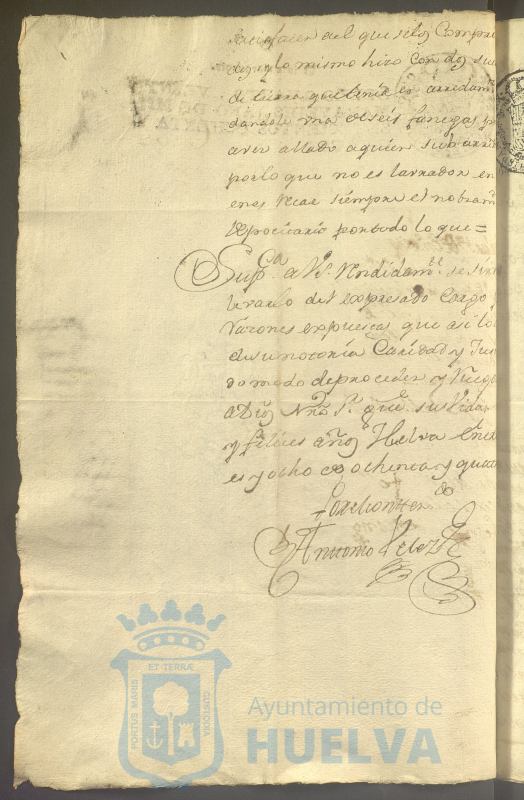 satisfacer del que selos Compra
dos, y lo mismo hizo con dos sue
de tierra que tenia en arredam
dandole una de seis fanegas, y
aver allado aquien sub arr
por lo que no es Labrador en
enes recae siempre el nobram
Depocitario por todo lo que =
Sup.ca a VS. Rendidam.te se sir
levarlo del expresado Cargo
razones expuestas que asi lo
de su notoria Caridad y Jus
do modo de proceder, y Ruego
a Dios Nro S.r que sus Vida
y felices años Huelva Ene
es y ocho de ochenta y quat
Antonio Velez
PORTUS MARIS
ET TERRÆ
CUSTODIA
Ayuntamiento de
HUELVA